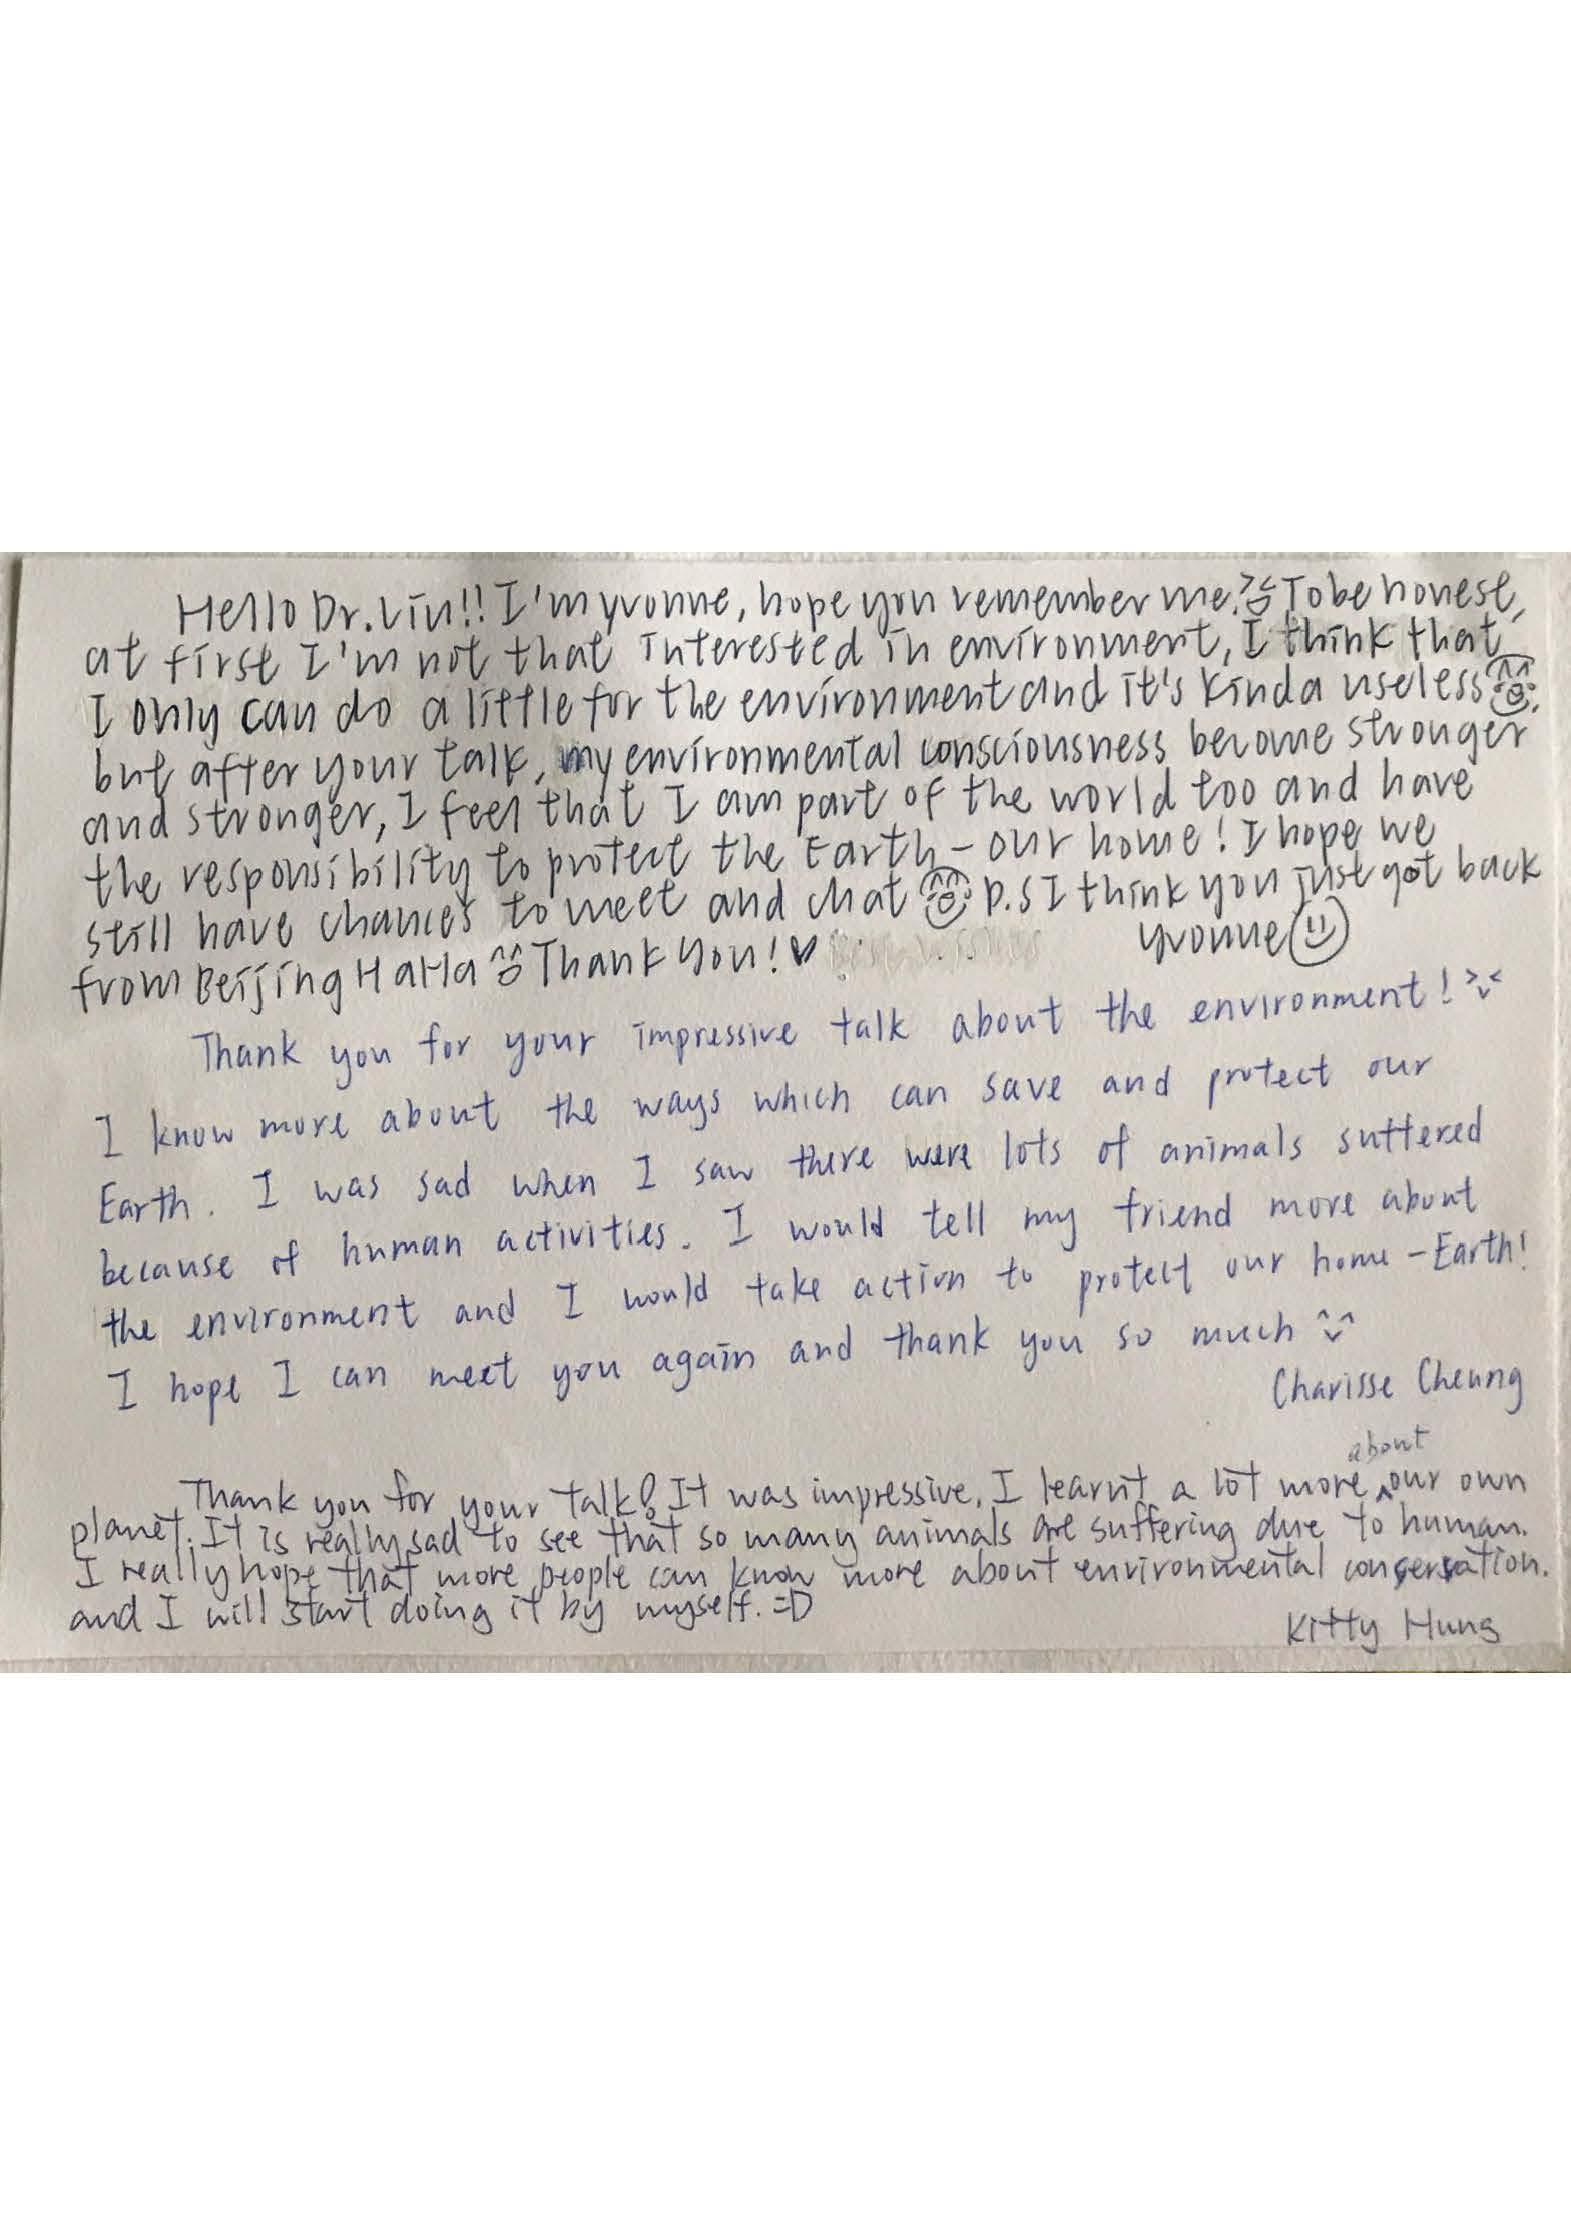 Hello Dr. Liu!! I'm yvonne, hope you remember me. To be honest,
at first I'm not that interested in environment, I think that
I only can do a little for the environment and it's kinda useless
but after your talk, my environmental consciousness become stronger
and stronger, I feel that I am part of the world too and have
the responsibility to protect the Earth - our home! I hope we
still have chances to meet and chat P.S I think you just got back
from Beijing HaHa Thank you! ♥
yvonne
Thank you for your impressive talk about the environment!
I know more about the ways which can save and protect our
Earth. I was sad when I saw there were lots of animals suffered
because of human activities. I would tell my friend more about
the environment and I would take action to protect our home - Earth!
I hope I can meet you again and thank you so much ^v^
Charisse Cheung
Thank you for your talk! It was impressive. I learnt a lot more about our own
planet. It is really sad to see that so many animals are suffering due to human.
I really hope that more people can know more about environmental conservation.
and I will start doing it by myself. =D
Kitty Hung